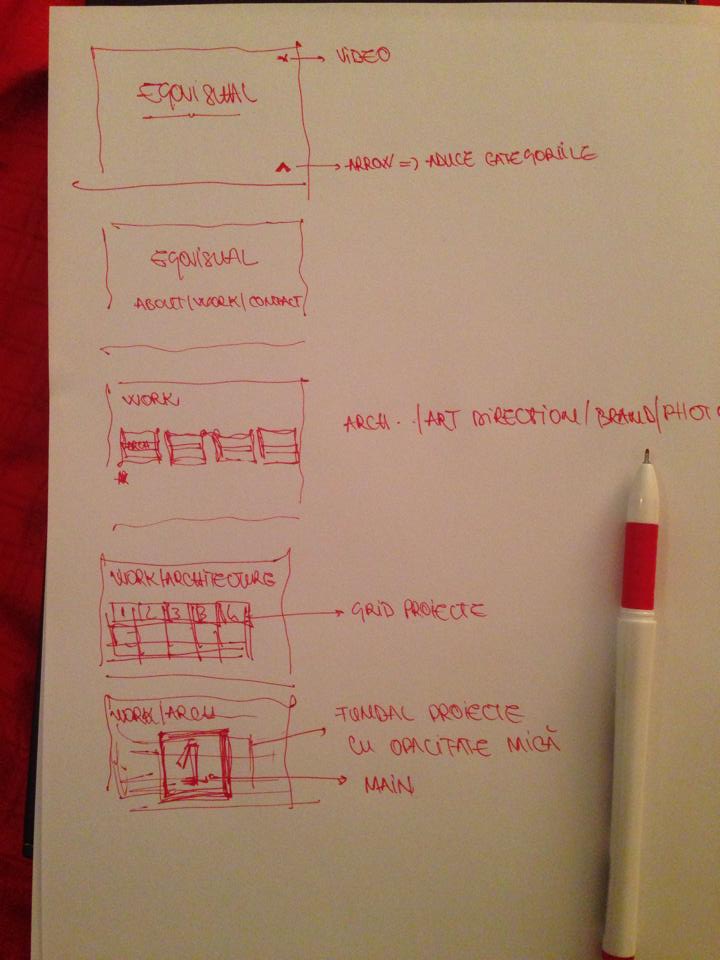 VIDEO
EQOVISUAL
ARROW => ADUCE CATEGORIILE
EQOVISUAL
ABOUT/WORK/CONTACT
WORK
ARCH
ARCH. /ART DIRECTION/BRAND/PHOTO
WORK/ARCHITECTURE
1 2 3
GRID PROIECTE
WORK/ARCH
FUNDAL PROIECTE
CU OPACITATE MICĂ
1
MAIN